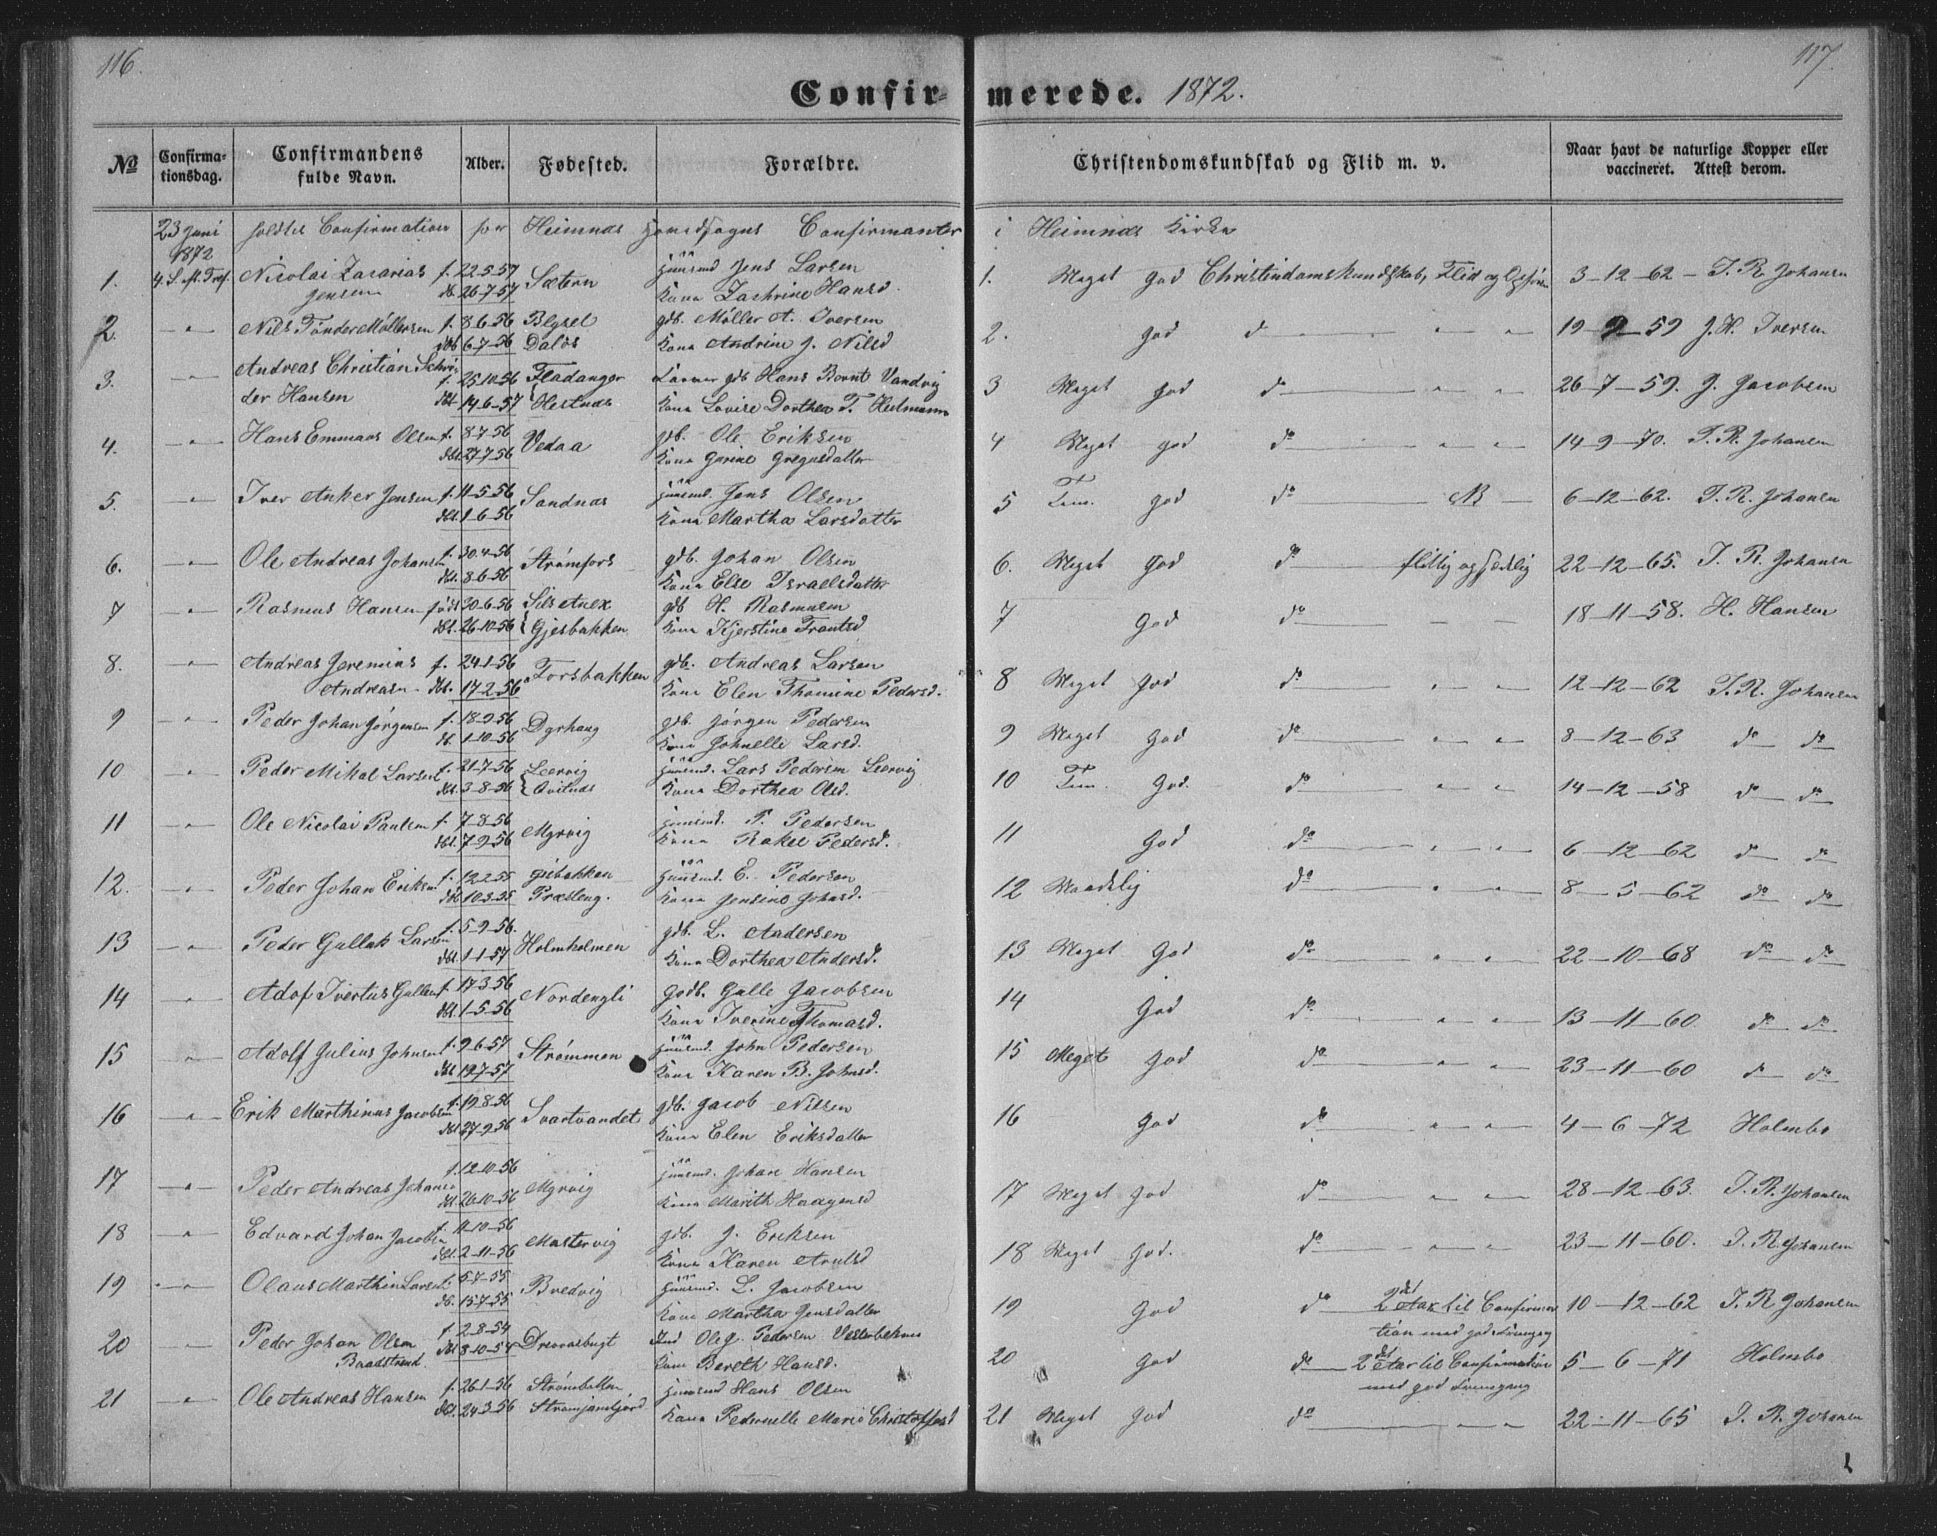 116.
117.
Confir- merede. 1872.
No
Confirma-
tionsdag.
Confirmandens
fulde Navn.
Alder.
Fødested.
Forældre.
Christendomskundskab og Flid m. v.
Naar havt de naturlige Kopper eller
vaccineret. Attest derom.
23 Juni holdtes Confirmation for Heimnæs Hovedsogns Confirmanter i Heimnæs Kirke
1872
4. S. Aft. Tref.
1. Nicolai Zacarias f. 22-5-57 Sætern Huusmd Jens Larsen 1. Meget god Christendomskundskab, Flid og 3-12-62 - J. R. Johansen
Jensen db. 26-7-57 Kone Hansd.
2. -"- Nils Tønder Møllersen f. 8-6-56 gdb. Møller A. Iversen 2. god do " " 19-9-59 J. H. Iversen
dbt 6-7-56 Kone Andrine J. Nilsd
3. -"- Andreas Christian Schrø- f. 25-10-56 Fladanger Hans Bernt Vandvig 3 Meget god do " " 26-7-59. J. Jacobsen
der Hansen dbt 14-6-57 Hestnæs Kone Lovise Dorthea F. Heilmann
4. -"- Hans Emmaus Olsen f. 8-7-56 Vedaa gdb. Ole Eriksen 4 Meget god do " " 14-9-70. J. R. Johansen
dbt. 27-7-56 Kone Gregusdatter
5. -"- Iver Anker Jensen f. 11-5-56 Sandnæs Huusmd. Jens Olsen 5 Tem. god do NB 6-12-62. J. R. Johansen
dbt. 1-6-56 Kone Martha Larsdatter
6. -"- Ole Andreas Johansen f. 30-4-56 Strømfors gdb. Johan Olsen 6. Meget god do flittig og sædelig 22-12-65. J. R. Johansen
dbt. 8-6-56 Kone Else Israelsdatter
7 -"- Rasmus Hansen født 30-6-56 gdb H. Rasmusen 7 God do 18-11-58. H. Hansen
dbt. 26-10-56 Gjesbakken Kone Kjerstine Frantsd
8. -"- Andreas Jeremias f. 24-1-56 Forsbakken gdb. Andreas Larsen 8 Meget god do " " 12-12-62 J. R. Johansen
Andreasen dbt. 17-2-56 Kone Elen Thomine Pedersd.
9 -"- Peder Johan Jørgensen f. 18-9-56 Dyrhaug gdb. Jørgen Pedersen 9 Meget God do " " 8-12-63 do do
db. 1-10-56 Kone Johnelle Larsd.
10 -"- Peder Mikal Larsen f. 21-7-56 Leervig Huusmd. Lars Pedersen Leervig 10 Tem. God. do " " 14-12-58 do do
dbt. 3-8-56 Kone Dorthea Olsd.
11 -"- Ole Nicolai Paulsen f. 7-8-56 Myrvig Huusmd. P. Pedersen 11 God do " " 6-12-62 do do
dbt. 7-9-56 Kone Rakel Pedersd.
12. -"- Peder Johan Eriksen f. 12-2-55 Huusmd. E. Pedersen 12 Maadelig do " " 8-5-62 do do
dbt 10-3-55 Præsteng. Kone Jensine Johnsd.
13 -"- Peder Gullak Larsen f. 5-9-56 Holmholmen gdb. L. Andersen 13 Meget God do " " 22-10-68 do do
dbt. 1-1-57 Kone Dorthea Andersd.
14 " Adof Ivertus Gullesen f. 17-3-56 Nordengli Gdb. Gulle Jacobsen 14 God do " " 13-11-60 do do
dbt. 1-5-56 Kone Iverine Thomasd.
15 " Adolf Julius Johnsen f. 9-6-57 Strømmen Huusmd. John Pedersen 15 Meget god do " " 23-11-60 do do
dbt 19-7-57 Kone Karen B. Johnsd.
16 -"- Erik Marthinus Jacobsen f. 19-8-56 Svartvandet gdb. Jacob Nilsen 16 God do " " 4-6-72 Holmbo
dbt 27-9-56 Kone Elen Eriksdatter
17 -"- Peder Andreas Johansen f. 12-10-56 Myrvig Huusmd. Johan Hansen 17 Meget God do " " 28-12-63. J. R. Johansen
dbt 26-10-56 Kone Marith Haagensd
18 -"- Edvard Johan Jacobsen f. 11-10-56 Mastervig gdb. J. Eriksen 18 Meget God. do " " 23-11-60. J. R. Johansen
dbt. 2-11-56 Kone Karen Arntsd
19 -"- Olaus Marthin Larsen f. 5-7-55 Bredvig Huusmd. L. Jacobsen 19 God do 2det Aar til Confirma- 10-12-62 J. R. Johansen
db. 15-7-55 Kone Martha Jensdatter tion med god Fremgang
20 -"- Peder Johan Olsen f. 2-8-54 Ole J. Pedersen 20 God do 2det Aar til Confirmation 5-6-71 Holmbo
Baadstrand. dbt 8-10-54 Kone Bereth Hansd. med god Fremgang
21 -"- Ole Andreas Hansen f. 26-1-56 Huusmd Hans Olsen 21 Meget God do " " 22-11-65 J. R. Johansen
dbt. 24-3-56 Kone Pedernelle Marie Christoffersd